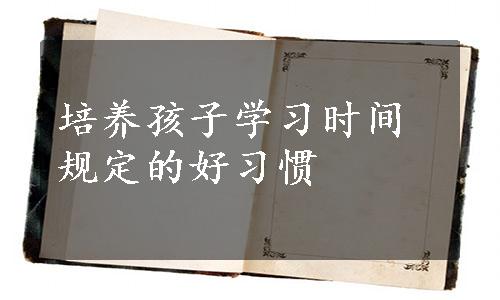 培养孩子学习时间
规定的好习惯